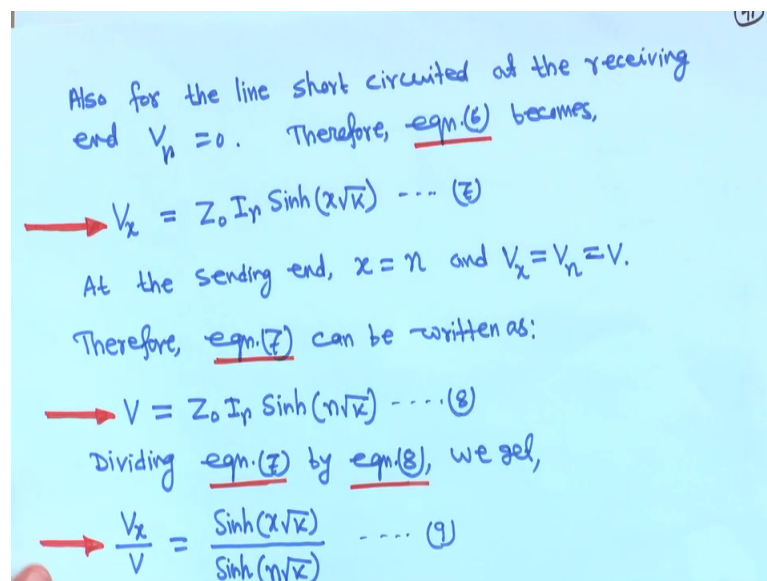 41
Also for the line short circuited at the receiving
end Vr = 0. Therefore, eqn.(6) becomes,
Vx = Z₀ Ir Sinh(x√K) ---- (7)
At the sending end, x = n and Vx = Vn = V.
Therefore, eqn.(7) can be written as:
V = Z₀ Ir Sinh(n√K) ----- (8)
Dividing eqn.(7) by eqn.(8), we get,
Vx/V = Sinh(x√K)/Sinh(n√K) ---- (9)